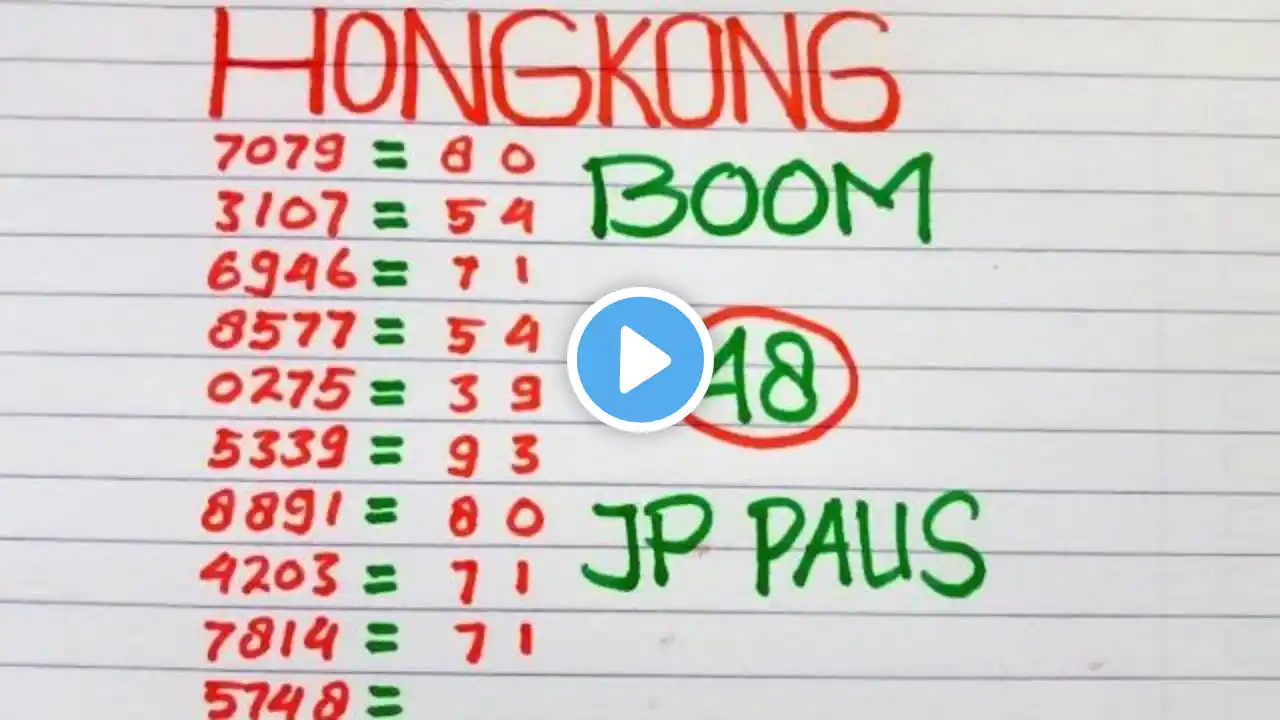 HONGKONG
7079 = 80
3107 = 54
6946 = 71
8577 = 54
0275 = 39
5339 = 93
8891 = 80
4203 = 71
7814 = 71
5748 =
BOOM
48
JP PAUS